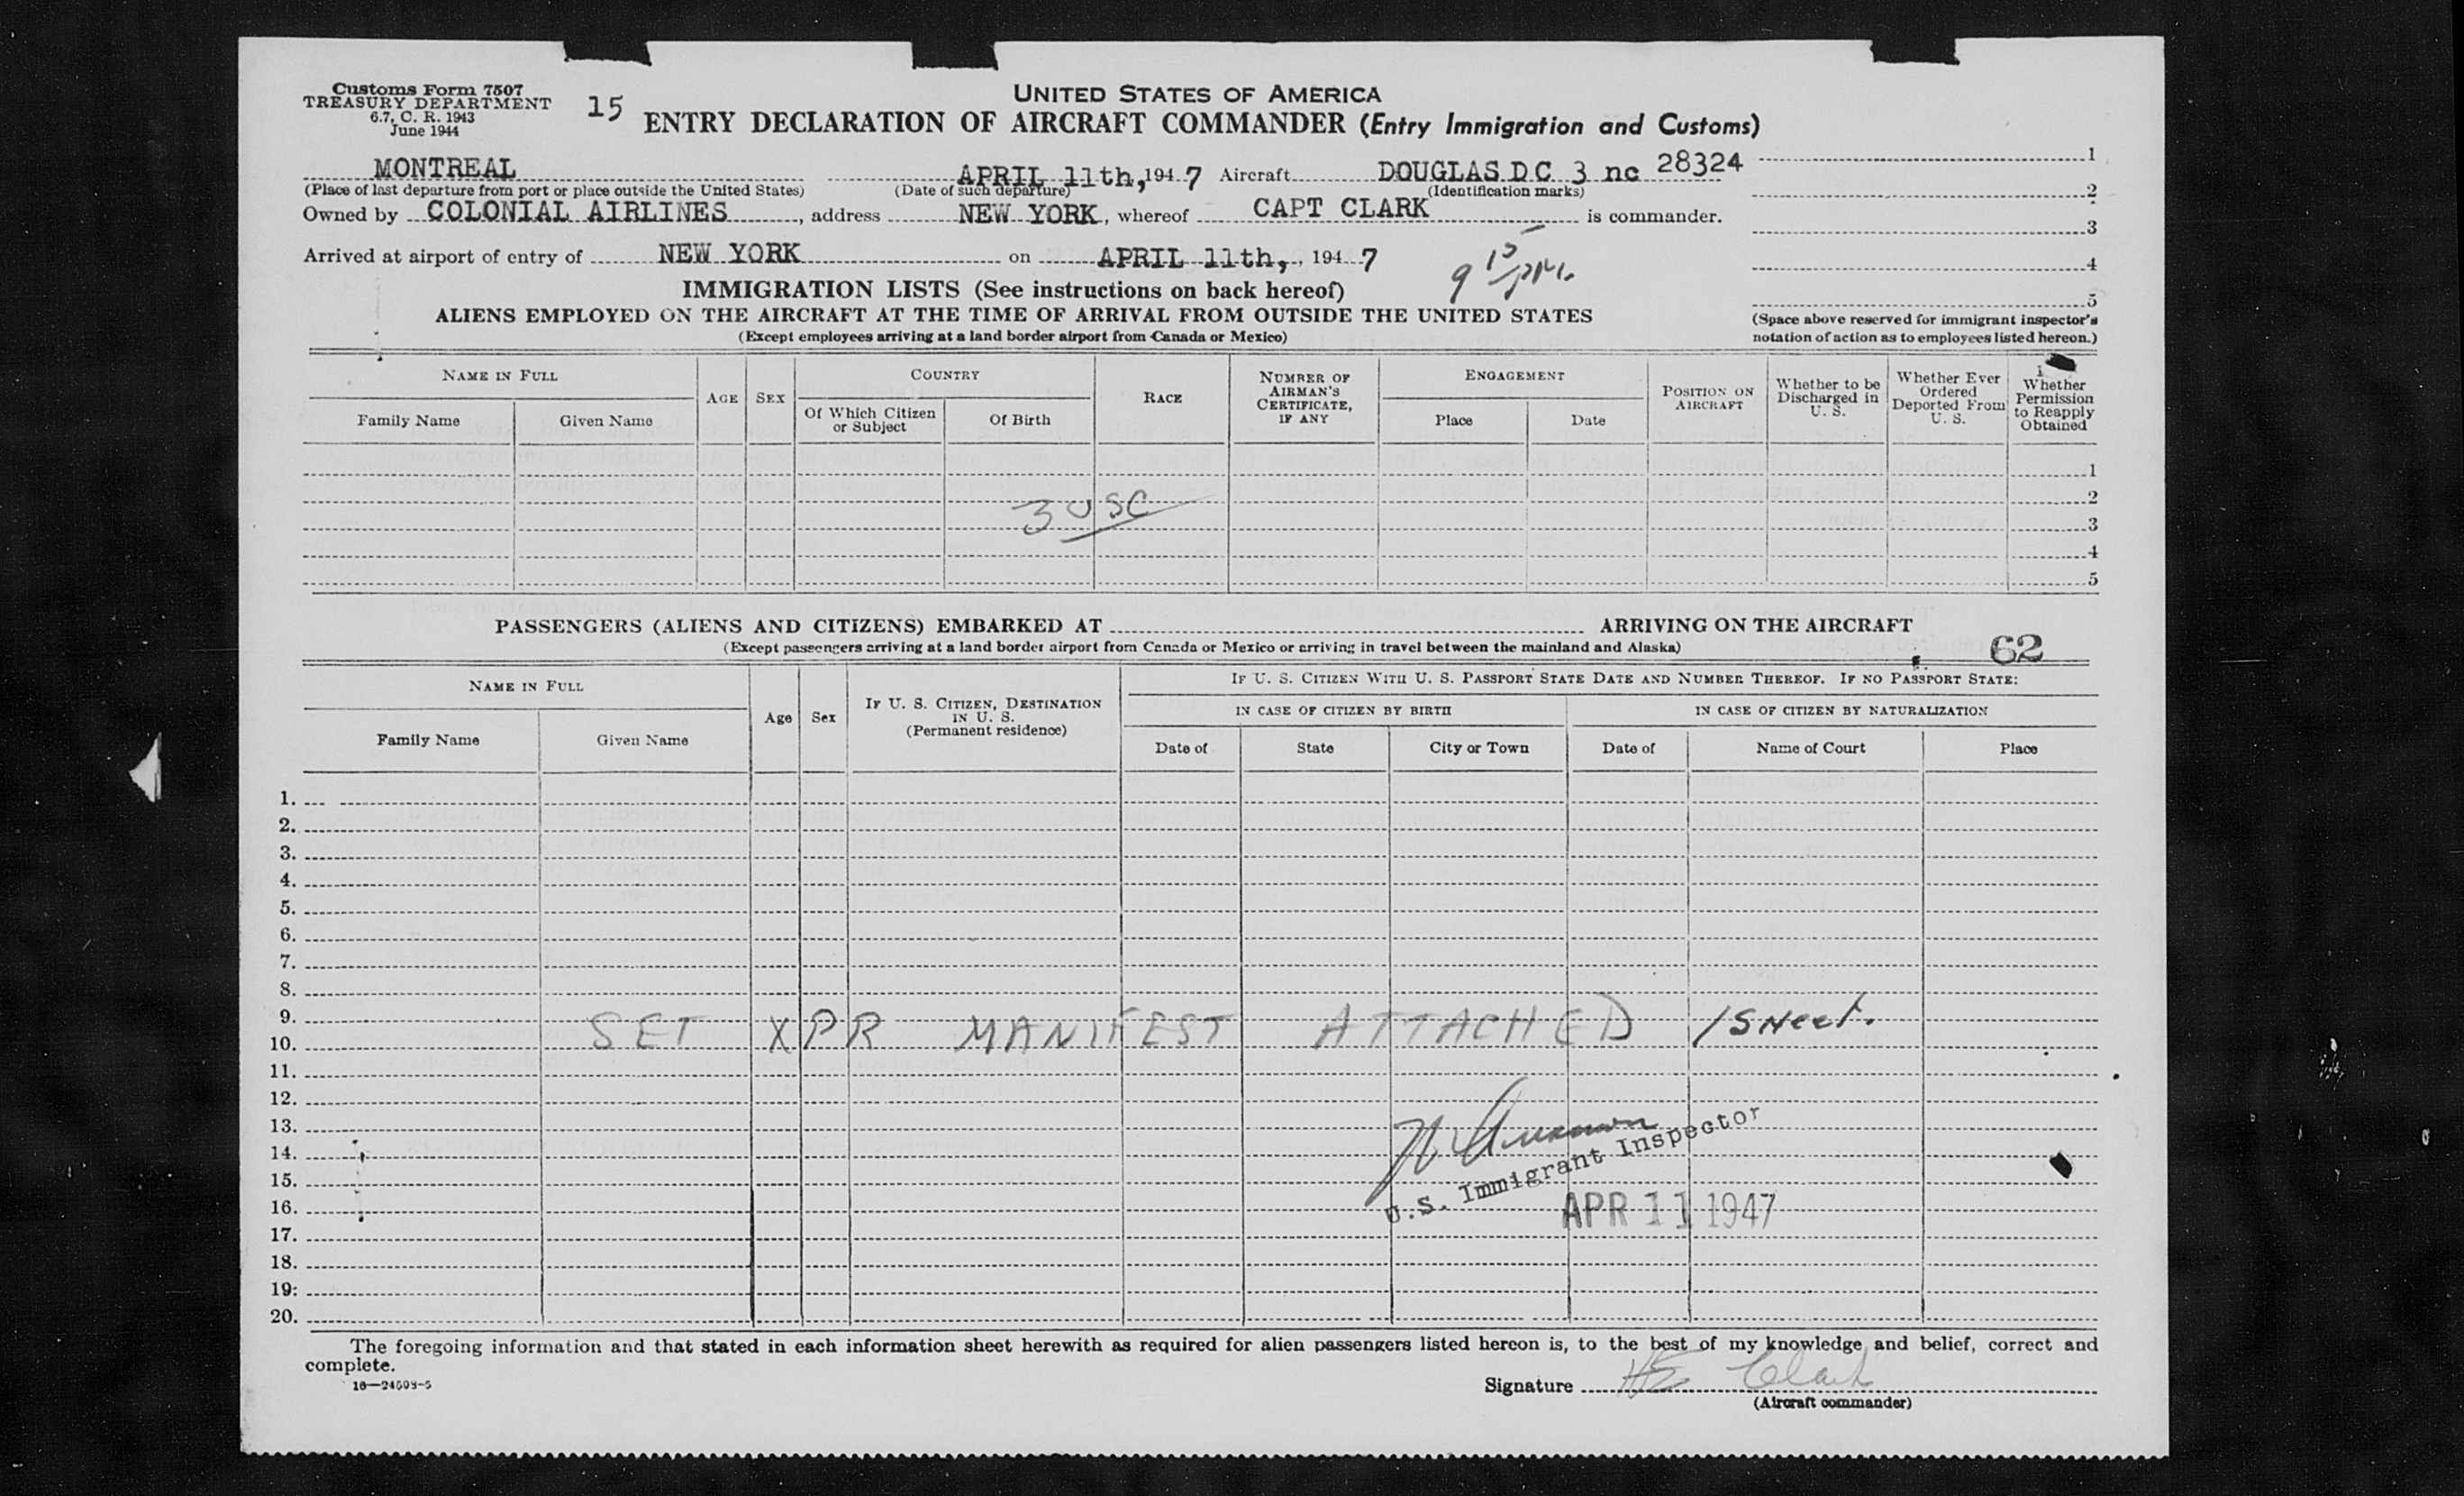 Customs Form 7507
TREASURY DEPARTMENT
6.7, C. R. 1943
June 1944
15
UNITED STATES OF AMERICA
ENTRY DECLARATION OF AIRCRAFT COMMANDER (Entry Immigration and Customs)
MONTREAL APRIL 11th, 1947 Aircraft DOUGLAS D C 3 nc 28324 1
(Place of last departure from port or place outside the United States) (Date of such departure) (Identification marks) 2
Owned by COLONIAL AIRLINES, address NEW YORK, whereof CAPT CLARK is commander.
3
Arrived at airport of entry of NEW YORK on APRIL 11th, 1947 9 15 PM. 4
IMMIGRATION LISTS (See instructions on back hereof) 5
ALIENS EMPLOYED ON THE AIRCRAFT AT THE TIME OF ARRIVAL FROM OUTSIDE THE UNITED STATES
(Except employees arriving at a land border airport from Canada or Mexico)
(Space above reserved for immigrant inspector's
notation of action as to employees listed hereon.)
NAME IN FULL
Family Name Given Name
AGE SEX
COUNTRY
Of Which Citizen
or Subject
Of Birth
RACE
NUMBER OF
AIRMAN'S
CERTIFICATE,
IF ANY
ENGAGEMENT
Place Date
POSITION ON
AIRCRAFT
Whether to be
Discharged in
U. S.
Whether Ever
Ordered
Deported From
U. S.
Whether
Permission
to Reapply
Obtained
1
2
3 USC
3
4
5
PASSENGERS (ALIENS AND CITIZENS) EMBARKED AT ARRIVING ON THE AIRCRAFT
(Except passengers arriving at a land border airport from Canada or Mexico or arriving in travel between the mainland and Alaska)
62
NAME IN FULL
Family Name Given Name
Age Sex
IF U. S. CITIZEN, DESTINATION
IN U. S.
(Permanent residence)
IF U. S. CITIZEN WITH U. S. PASSPORT STATE DATE AND NUMBER THEREOF. IF NO PASSPORT STATE:
IN CASE OF CITIZEN BY BIRTH IN CASE OF CITIZEN BY NATURALIZATION
Date of State City or Town Date of Name of Court Place
1.
2.
3.
4.
5.
6.
7.
8.
9.
SET XPR MANIFEST ATTACHED 1 SHeet.
10.
11.
12.
13.
14.
U.S. Immigrant Inspector
15.
16. APR 11 1947
17.
18.
19.
20.
The foregoing information and that stated in each information sheet herewith as required for alien passengers listed hereon is, to the best of my knowledge and belief, correct and
complete.
16—24593-5
Signature HE Clark
(Aircraft commander)